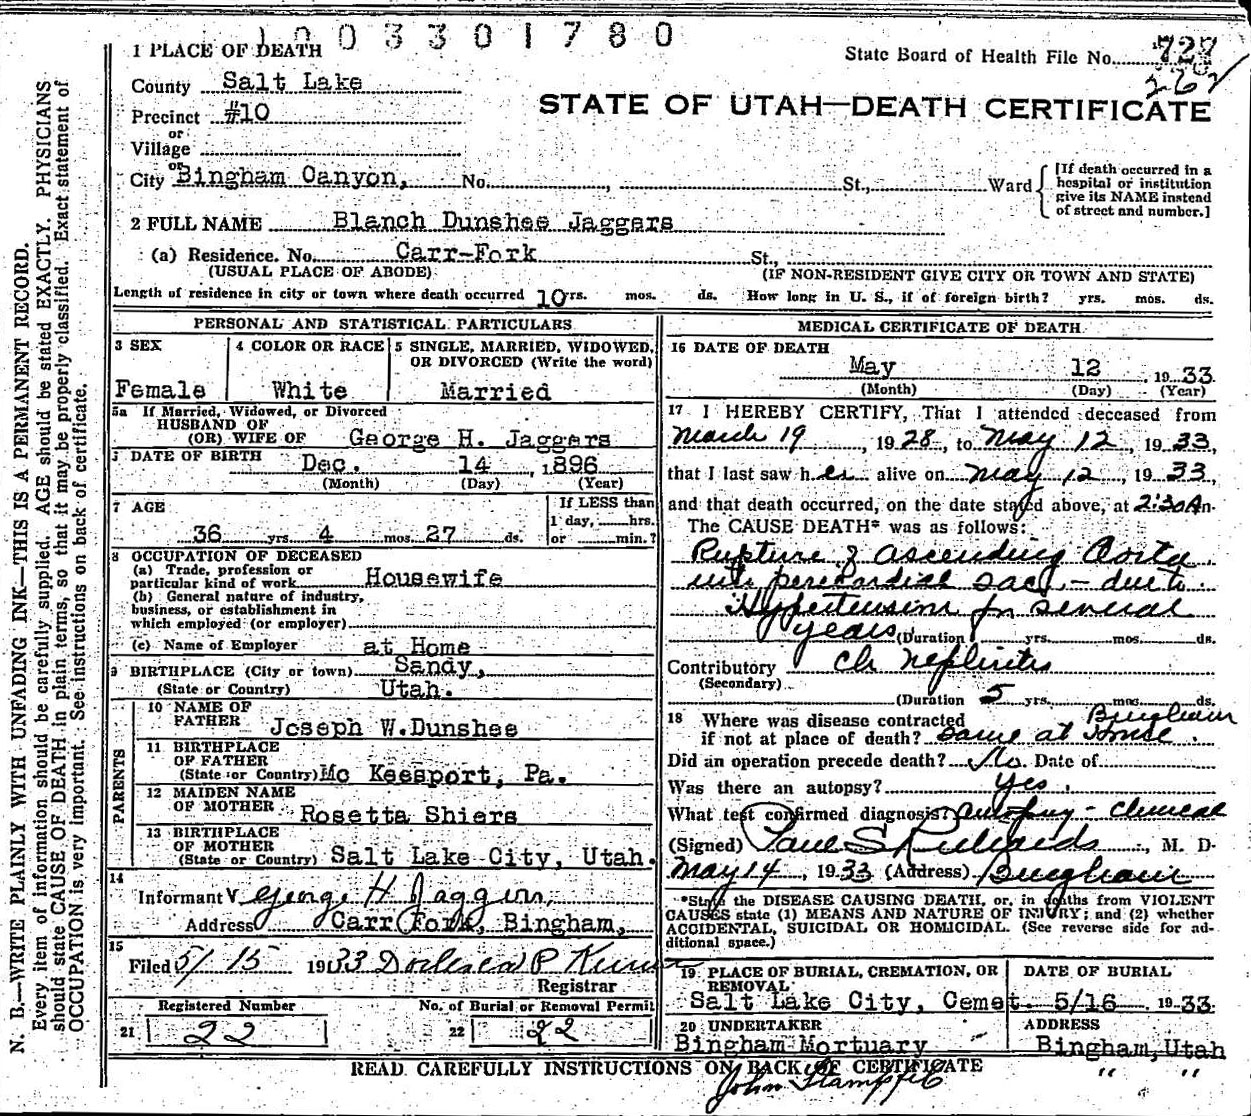 1003301780
1 PLACE OF DEATH
State Board of Health File No. 727
262
County Salt Lake
STATE OF UTAH—DEATH CERTIFICATE
Precinct #10
or
Village
or
City Bingham Canyon, No. , St., Ward
[If death occurred in a hospital or institution give its NAME instead of street and number.]
2 FULL NAME Blanch Dunshee Jaggers
(a) Residence. No. Carr-Fork St.,
(USUAL PLACE OF ABODE) (IF NON-RESIDENT GIVE CITY OR TOWN AND STATE)
Length of residence in city or town where death occurred 10 yrs. mos. ds. How long in U. S., if of foreign birth? yrs. mos. ds.
PERSONAL AND STATISTICAL PARTICULARS
3 SEX
Female
4 COLOR OR RACE
White
5 SINGLE, MARRIED, WIDOWED, OR DIVORCED (Write the word)
Married
5a If Married, Widowed, or Divorced
HUSBAND OF
(OR) WIFE OF George H. Jaggers
DATE OF BIRTH Dec. 14, 1896
(Month) (Day) (Year)
7 AGE
36 yrs. 4 mos. 27 ds.
If LESS than
1 day, hrs.
or min.?
8 OCCUPATION OF DECEASED
(a) Trade, profession or
particular kind of work Housewife
(b) General nature of industry,
business, or establishment in
which employed (or employer)
(c) Name of Employer at Home
9 BIRTHPLACE (City or town) Sandy,
(State or Country) Utah.
PARENTS
10 NAME OF
FATHER Joseph W.Dunshee
11 BIRTHPLACE
OF FATHER
(State or Country) Mc Keesport, Pa.
12 MAIDEN NAME
OF MOTHER Rosetta Shiers
13 BIRTHPLACE
OF MOTHER
(State or Country) Salt Lake City, Utah.
14
Informant George H Jaggers,
Address Carr Fork, Bingham,
15
Filed 5/15 1933
Registrar
Registered Number
21 22
No. of Burial or Removal Permit
22 22
MEDICAL CERTIFICATE OF DEATH
16 DATE OF DEATH
May 12, 1933
(Month) (Day) (Year)
17 I HEREBY CERTIFY, That I attended deceased from
March 19, 1928, to May 12, 1933,
that I last saw her alive on May 12, 1933,
and that death occurred, on the date stated above, at 2:30 A m.
The CAUSE DEATH* was as follows:
Rupture of ascending Aorta
into pericardial sac - due to
Hypertension for several
years (Duration yrs. mos. ds.
Contributory Ch Nephritis
(Secondary)
(Duration 5 yrs. mos. ds.
18 Where was disease contracted Bingham
if not at place of death? Same at House.
Did an operation precede death? No. Date of
Was there an autopsy? Yes.
What test confirmed diagnosis? Autopsy - Clinical
(Signed) Paul S Richards, M. D.
May 14, 1933 (Address) Bingham
*State the DISEASE CAUSING DEATH, or, in deaths from VIOLENT
CAUSES state (1) MEANS AND NATURE OF INJURY; and (2) whether
ACCIDENTAL, SUICIDAL OR HOMICIDAL. (See reverse side for ad-
ditional space.)
19 PLACE OF BURIAL, CREMATION, OR
REMOVAL
Salt Lake City, Cemet.
DATE OF BURIAL
5/16 1933
20 UNDERTAKER
Bingham Mortuary
ADDRESS
Bingham, Utah
John Stampfel " "
READ CAREFULLY INSTRUCTIONS ON BACK OF CERTIFICATE
N. B.—WRITE PLAINLY WITH UNFADING INK—THIS IS A PERMANENT RECORD.
Every item of information should be carefully supplied. AGE should be stated EXACTLY. PHYSICIANS
should state CAUSE OF DEATH in plain terms, so that it may be properly classified. Exact statement of
OCCUPATION is very important. See instructions on back of certificate.